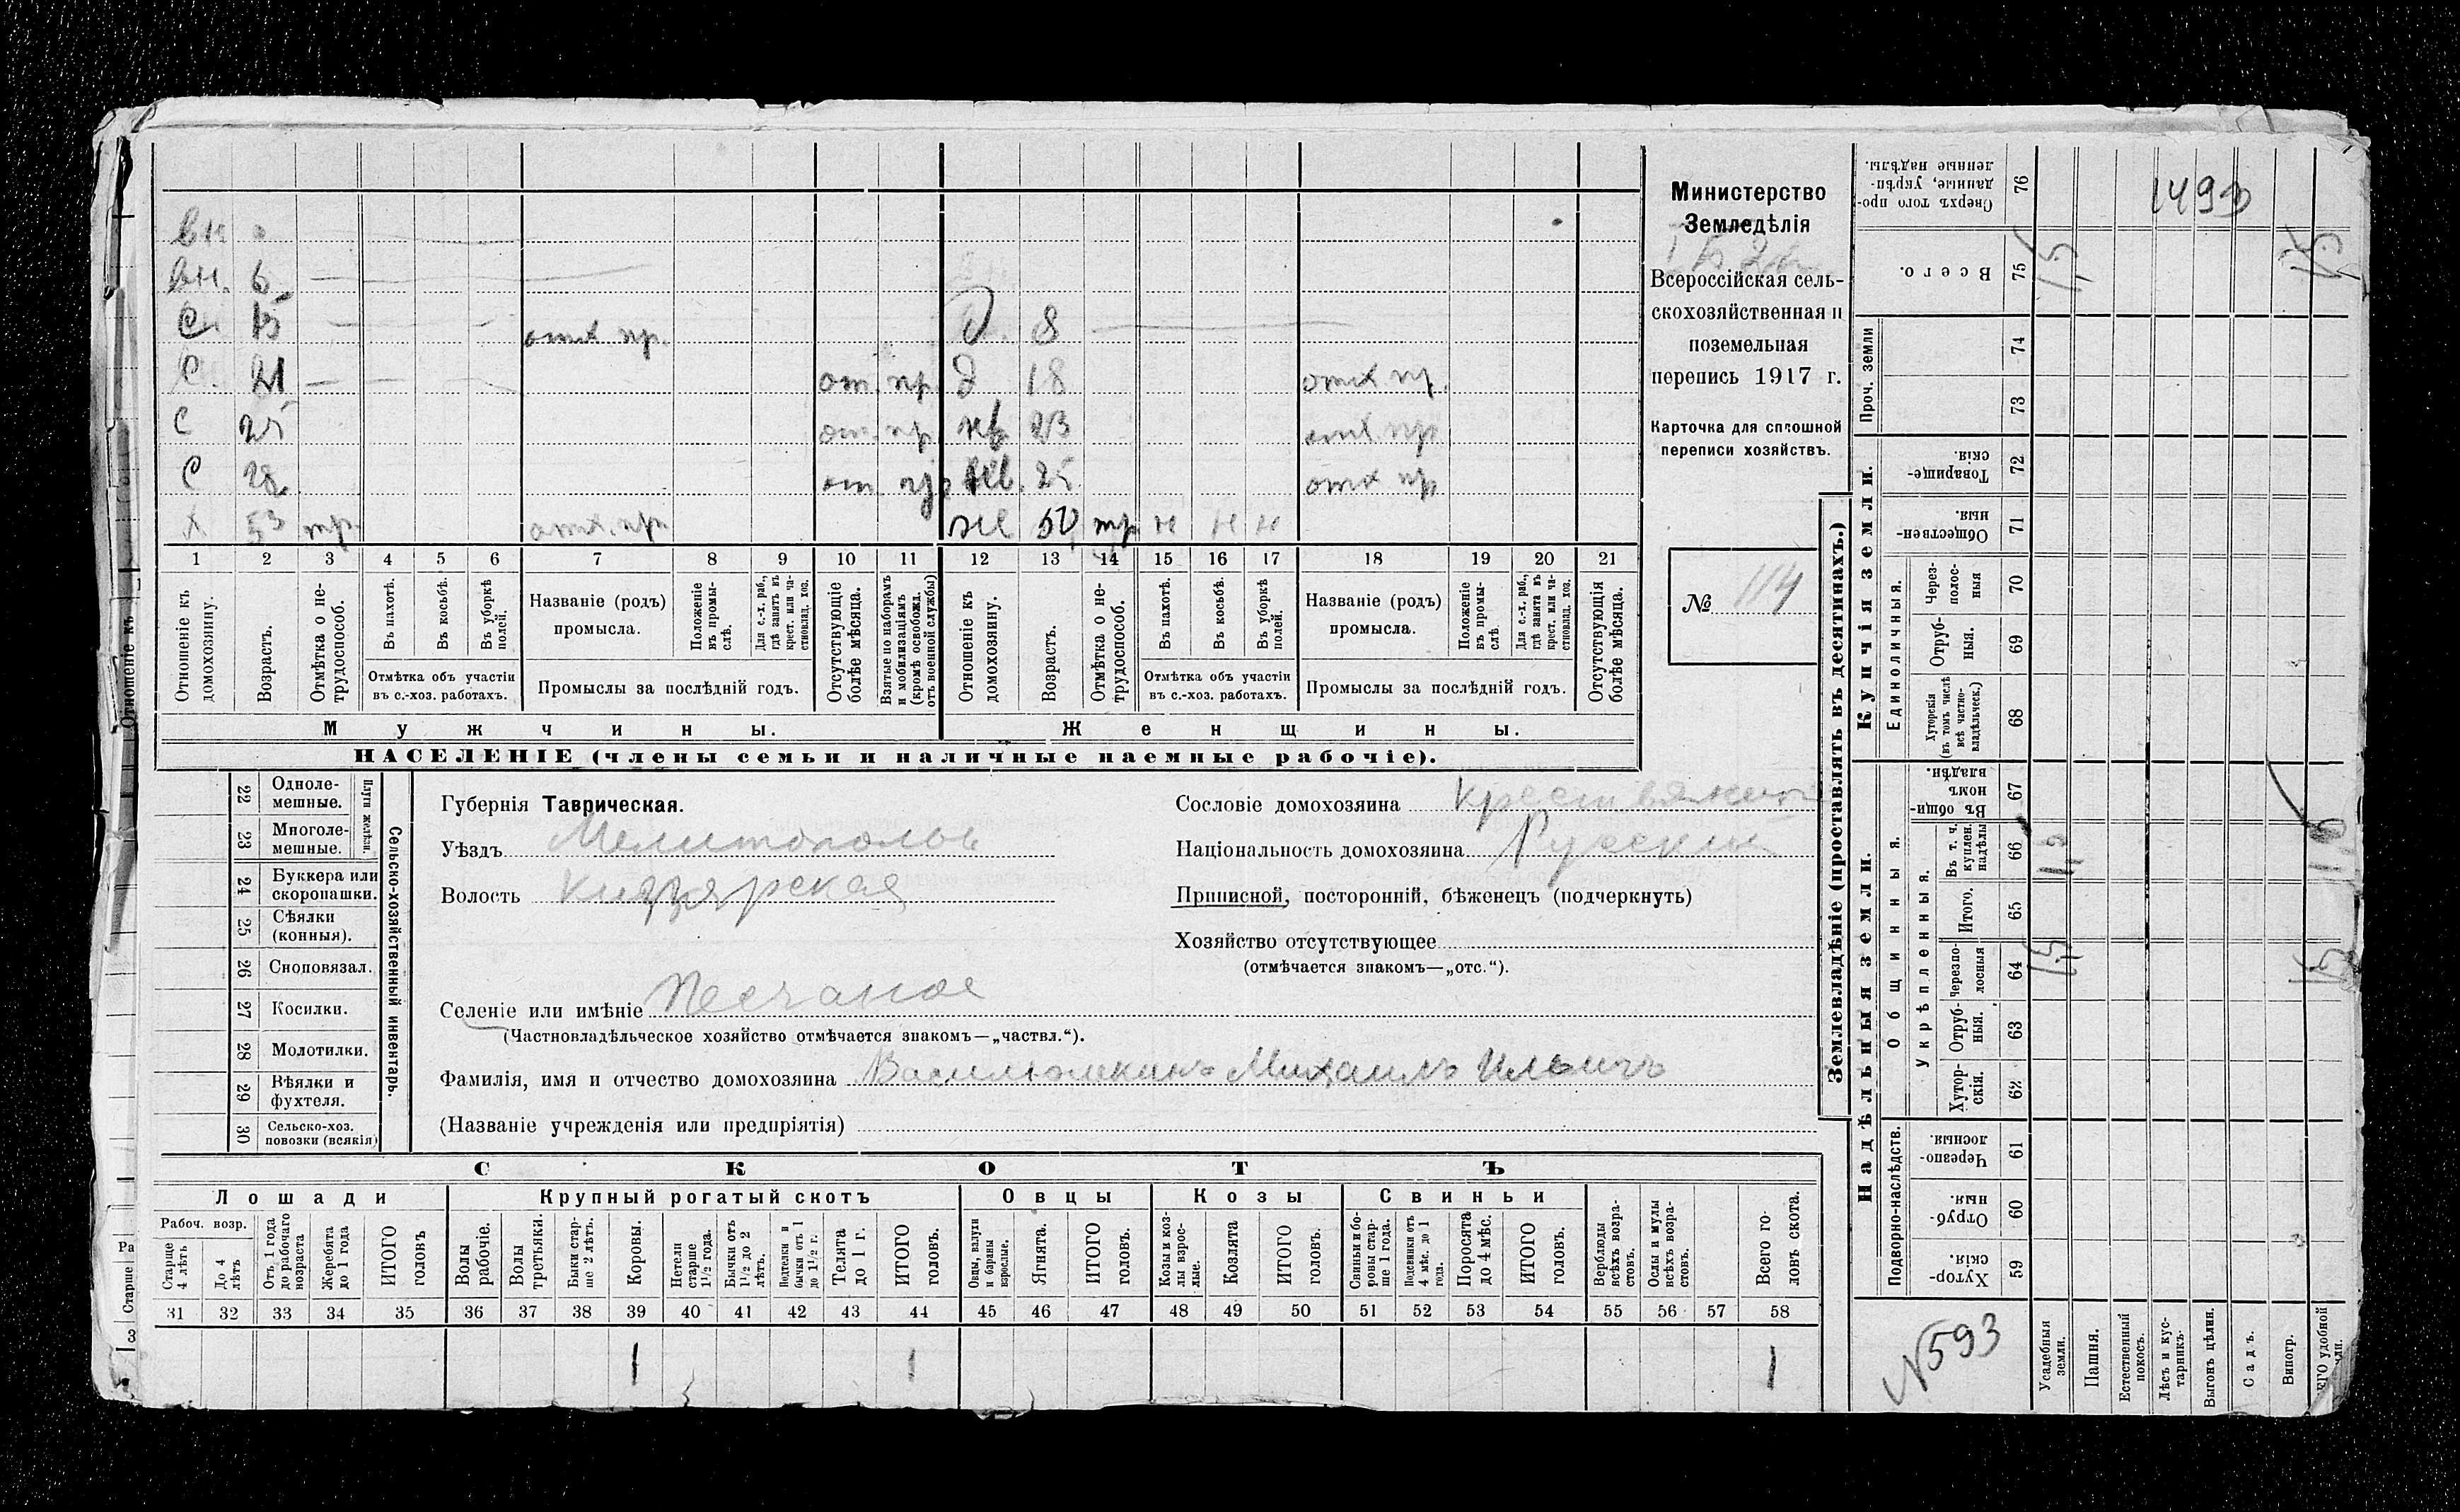 вн
вн. 6
С 15 отх пр. д. 8
С. 21 от. пр д 18 отх пр.
С 25 от. пр нв 23 отх пр
С 28 от. пр нев. 25 отх пр
х 53 тр отх. пр. же 50 тр н н н
1 2 3 4 5 6 7 8 9 10 11 12 13 14 15 16 17 18 19 20 21
Отношеніе къ домохозяину.
Возрастъ.
Отмѣтка о нетрудоспособ.
Въ пахотѣ.
Въ косьбѣ.
Въ уборкѣ полей.
Отмѣтка объ участіи
въ с.-хоз. работахъ.
Названіе (родъ)
промысла.
Положеніе въ промыслѣ.
Для с.-х. раб., гдѣ занятъ въ крест. или частновлад. хоз.
Промыслы за послѣдній годъ.
Отсутствующіе болѣе мѣсяца.
Взятые по наборамъ и мобилизаціямъ (кромѣ освобожд. отъ военной службы)
Отношеніе къ домохозяину.
Возрастъ.
Отмѣтка о нетрудоспособ.
Въ пахотѣ.
Въ косьбѣ.
Въ уборкѣ полей.
Отмѣтка объ участіи
въ с.-хоз. работахъ.
Названіе (родъ)
промысла.
Положеніе въ промыслѣ
Для с.-х. раб., гдѣ занята въ крест. или частновлад. хоз.
Промыслы за послѣдній годъ.
Отсутствующія болѣе мѣсяца.
Мужчины. Женщины.
НАСЕЛЕНІЕ (члены семьи и наличные наемные рабочіе).
Министерство
Земледѣлія
Всероссійская сель-
скохозяйственная и
поземельная
перепись 1917 г.
Карточка для сплошной
переписи хозяйствъ.
№ 114
Сельско-хозяйственный инвентарь.
Плуги желѣзн.
22 Одноле-
мешные.
23 Многоле-
мешные.
24 Буккера или
скоропашки.
25 Сѣялки
(конныя).
26 Сноповязал.
27 Косилки.
28 Молотилки.
29 Вѣялки и
фухтеля.
30 Сельско-хоз.
повозки (всякія)
Губернія Таврическая.
Уѣздъ Мелитополь
Волость Кизіярская
Селеніе или имѣніе Песчаное
(Частновладѣльческое хозяйство отмѣчается знакомъ—„частвл.“).
Фамилія, имя и отчество домохозяина Михаилъ Ильичъ
(Названіе учрежденія или предпріятія)
Сословіе домохозяина
Національность домохозяина Русскій
Приписной, посторонній, бѣженецъ (подчеркнуть)
Хозяйство отсутствующее
(отмѣчается знакомъ—„отс.“).
СКОТЪ
Лошади Крупный рогатый скотъ Овцы Козы Свиньи
Рабоч. возр.
Старше 4 лѣтъ
До 4 лѣтъ
Отъ 1 года до рабочаго возраста
Жеребята до 1 года
ИТОГО головъ
Волы рабочіе.
Волы третьяки.
Быки старше 2 лѣтъ.
Коровы.
Нетели старше 1 1/2 года.
Бычки отъ 1 1/2 до 2 лѣтъ.
Подтелки и бычки отъ 1 до 1 1/2 г.
Телята до 1 г.
ИТОГО головъ.
Овцы, валухи и бараны взрослые.
Ягнята.
ИТОГО головъ.
Козы и козлы взрослые.
Козлята
ИТОГО головъ.
Свиньи и боровы старше 1 года.
Подсвинки отъ 4 мѣс. до 1 года.
Поросята до 4 мѣс.
ИТОГО головъ.
Верблюды всѣхъ возрастовъ.
Ослы и мулы всѣхъ возрастовъ.
Всего головъ скота.
31 32 33 34 35 36 37 38 39 40 41 42 43 44 45 46 47 48 49 50 51 52 53 54 55 56 57 58
1 1 1
Землевладѣніе (проставлять въ десятинахъ.)
Купчія земли.
Надѣльныя земли.
Сверхъ того проданные, укрѣпленные надѣлы. 76
Всего. 75
Проч. земли 74
73
Товарищескія. 72
Общественныя. 71
Единоличныя.
Черезполосныя 70
Отрубныя. 69
Хуторскія (въ томъ числѣ всѣ частновладѣльческ.) 68
Общинныя.
Въ общинномъ владѣн. 67
Укрѣпленныя.
Въ т. ч. куплен. надѣлы 66
Итого. 65
Черезполосныя 64
Отрубныя. 63
Хуторскія. 62
Подворно-наслѣдств.
Черезполосныя. 61
Отрубныя. 60
Хуторскія. 59
Усадебныя земли.
Пашня.
Естественный покосъ.
Лѣсъ и кустарникъ.
Выгонъ цѣлин.
Садъ.
Виногр.
удобной
1493
1,5
1,5
№593
Отношеніе къ
Старше